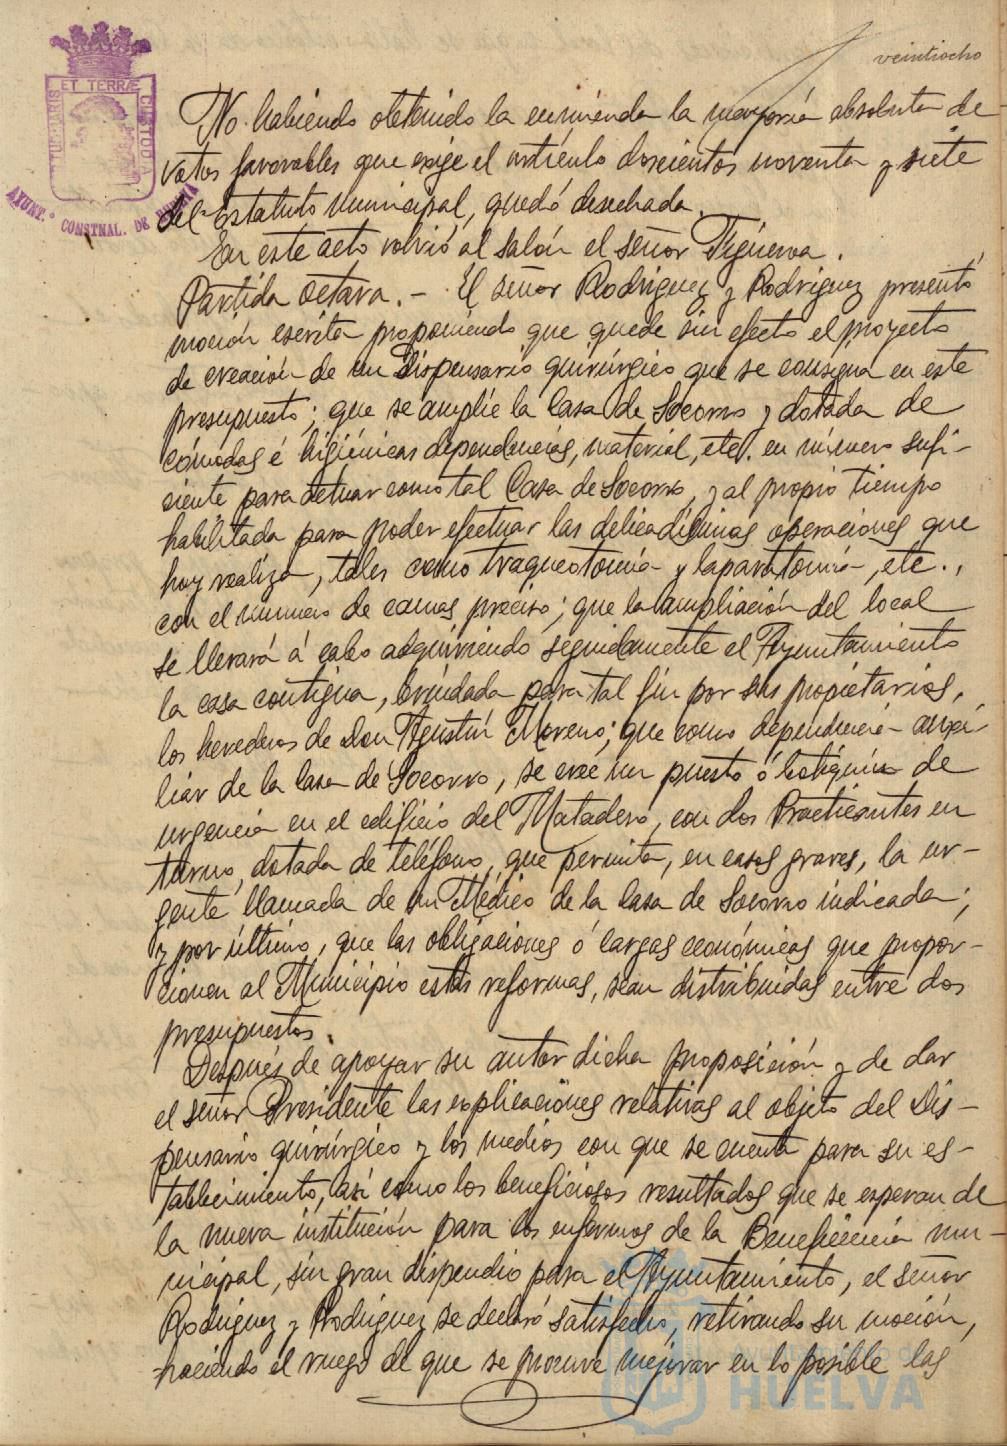 veintiocho
PORTUS MARIS ET TERRÆ CUSTODIA
AYUNT.º CONSTNAL. DE HUELVA
No habiendo obtenido la enmienda la mayoría absoluta de
votos favorables que exige el artículo doscientos noventa y siete
del Estatuto Municipal, quedó desechada.
En este acto volvió al salón el señor Figueroa.
Partida octava.- El señor Rodríguez y Rodríguez presentó
moción escrita proponiendo que quede sin efecto el proyecto
de creación de un Dispensario quirúrgico que se consigna en este
presupuesto; que se amplíe la Casa de Socorro y dotada de
cómodas é higiénicas dependencias, material, etc. en número sufi-
ciente para actuar como tal Casa de Socorro, y al propio tiempo
habilitada para poder efectuar las delicadísimas operaciones que
hoy realiza, tales como traqueotomía y laparatomía, etc.,
con el número de camas preciso; que la ampliación del local
se llevará á cabo adquiriendo seguidamente el Ayuntamiento
la casa contigua, brindada para tal fin por sus propietarios,
los herederos de Don Agustín Moreno; que como dependencia auxi-
liar de la Casa de Socorro, se cree un puesto ó botiquín de
urgencia en el edificio del Matadero, con dos Practicantes en
turno, dotada de teléfono, que permita, en casos graves, la ur-
gente llamada de un Médico de la Casa de Socorro indicada;
y por último, que las obligaciones ó cargas económicas que propor-
cionen al Municipio estas reformas, sean distribuidas entre dos
presupuestos.
Después de apoyar su autor dicha proposición y de dar
el señor Presidente las explicaciones relativas al objeto del Dis-
pensario quirúrgico y los medios con que se cuenta para su es-
tablecimiento, así como los beneficiosos resultados que se esperan de
la nueva institución para los enfermos de la Beneficencia mu-
nicipal, sin gran dispendio para el Ayuntamiento, el señor
Rodríguez y Rodríguez se declaró satisfecho, retirando su moción,
haciendo el ruego de que se procure mejorar en lo posible las
Ayuntamiento de
HUELVA